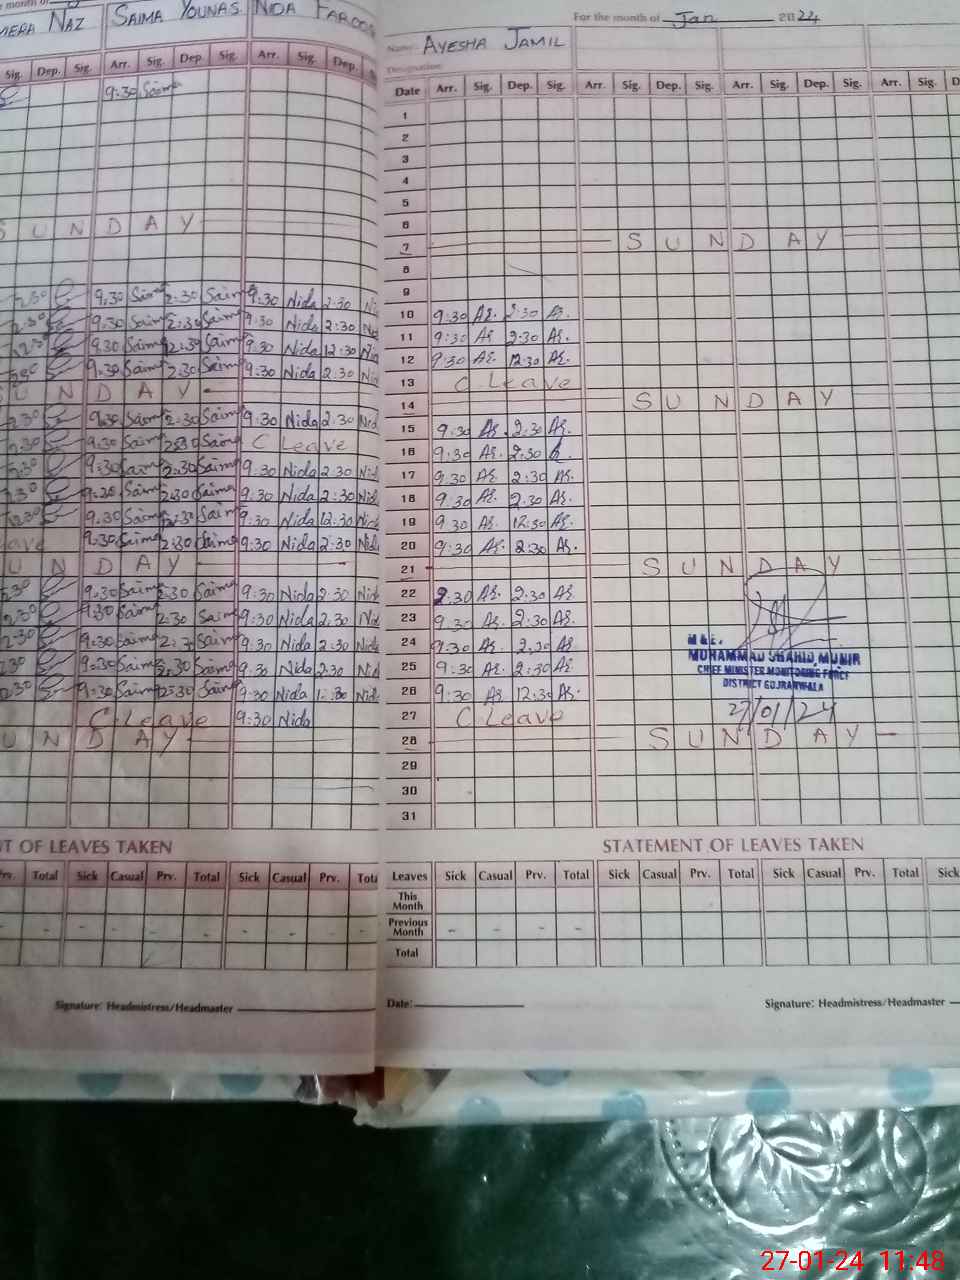 MERA NAZ SAIMA YOUNAS NIDA FAROO
Sig. Dep. Sig. Arr. Sig. Dep. Sig. Arr. Sig. Dep.
9:30 Saima
S U N D A Y
2:30 9:30 Saima 2:30 Saima 9:30 Nida 2:30 Ni
2:30 9:30 Saima 2:30 Saima 9:30 Nida 2:30 Nid
12:30 9:30 Saima 12:30 Saima 9:30 Nida 12:30 Nid
2:30 9:30 Saima 2:30 Saima 9:30 Nida 2:30 Nid
U N D A Y
2:30 9:30 Saima 2:30 Saima 9:30 Nida 2:30 Nid
2:30 9:30 Saima 2:30 Saima C Leave
2:30 9:30 Saima 2:30 Saima 9:30 Nida 2:30 Nid
2:30 9:30 Saima 2:30 Saima 9:30 Nida 2:30 Nid
12:30 9:30 Saima 12:30 Saima 9:30 Nida 12:30 Nid
eave 9:30 Saima 2:30 Saima 9:30 Nida 2:30 Nid
U N D A Y
2:30 9:30 Saima 2:30 Saima 9:30 Nida 2:30 Nid
2:30 9:30 Saima 2:30 Saima 9:30 Nida 2:30 Nid
2:30 9:30 Saima 2:30 Saima 9:30 Nida 2:30 Nid
2:30 9:30 Saima 2:30 Saima 9:30 Nida 2:30 Nid
9:30 Saima 12:30 Saima 9:30 Nida 12:30 Nid
C Leave 9:30 Nida
U N D A Y
T OF LEAVES TAKEN
Prv. Total Sick Casual Prv. Total Sick Casual Prv. Tota
Signature: Headmistress/Headmaster
For the month of Jan 2024
Name: AYESHA JAMIL
Designation
Date Arr. Sig. Dep. Sig. Arr. Sig. Dep. Sig. Arr. Sig. Dep. Sig. Arr. Sig. D
1
2
3
4
5
6
7 S U N D A Y
8
9
10 9:30 As. 2:30 As.
11 9:30 As 2:30 As.
12 9:30 As. 12:30 As.
13 C Leave
14 S U N D A Y
15 9:30 As. 2:30 As.
16 9:30 As. 2:30
17 9:30 As. 2:30 As.
18 9:30 As. 2:30 As.
19 9:30 As. 12:30 As.
20 9:30 As. 2:30 As.
21 S U N D A Y
22 2:30 As. 2:30 As.
23 9:30 As. 2:30 As.
24 9:30 As. 2:30 As.
25 9:30 As. 2:30 As
26 9:30 As 12:30 As.
27 C Leave
28 S U N D A Y
29
30
31
M.&E.
MUHAMMAD SHAHID MUNIR
CHIEF MINISTER MONITORING FORCE
DISTRICT GUJRANWALA
27/01/24
STATEMENT OF LEAVES TAKEN
Leaves Sick Casual Prv. Total Sick Casual Prv. Total Sick Casual Prv. Total Sick
This Month
Previous Month - - - -
Total
Date: Signature: Headmistress/Headmaster
27-01-24 11:48